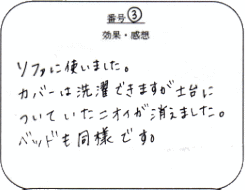 番号③
効果・感想
ソファに使いました。
カバーは洗濯できますが土台に
ついていたニオイが消えました。
ベッドも同様です。